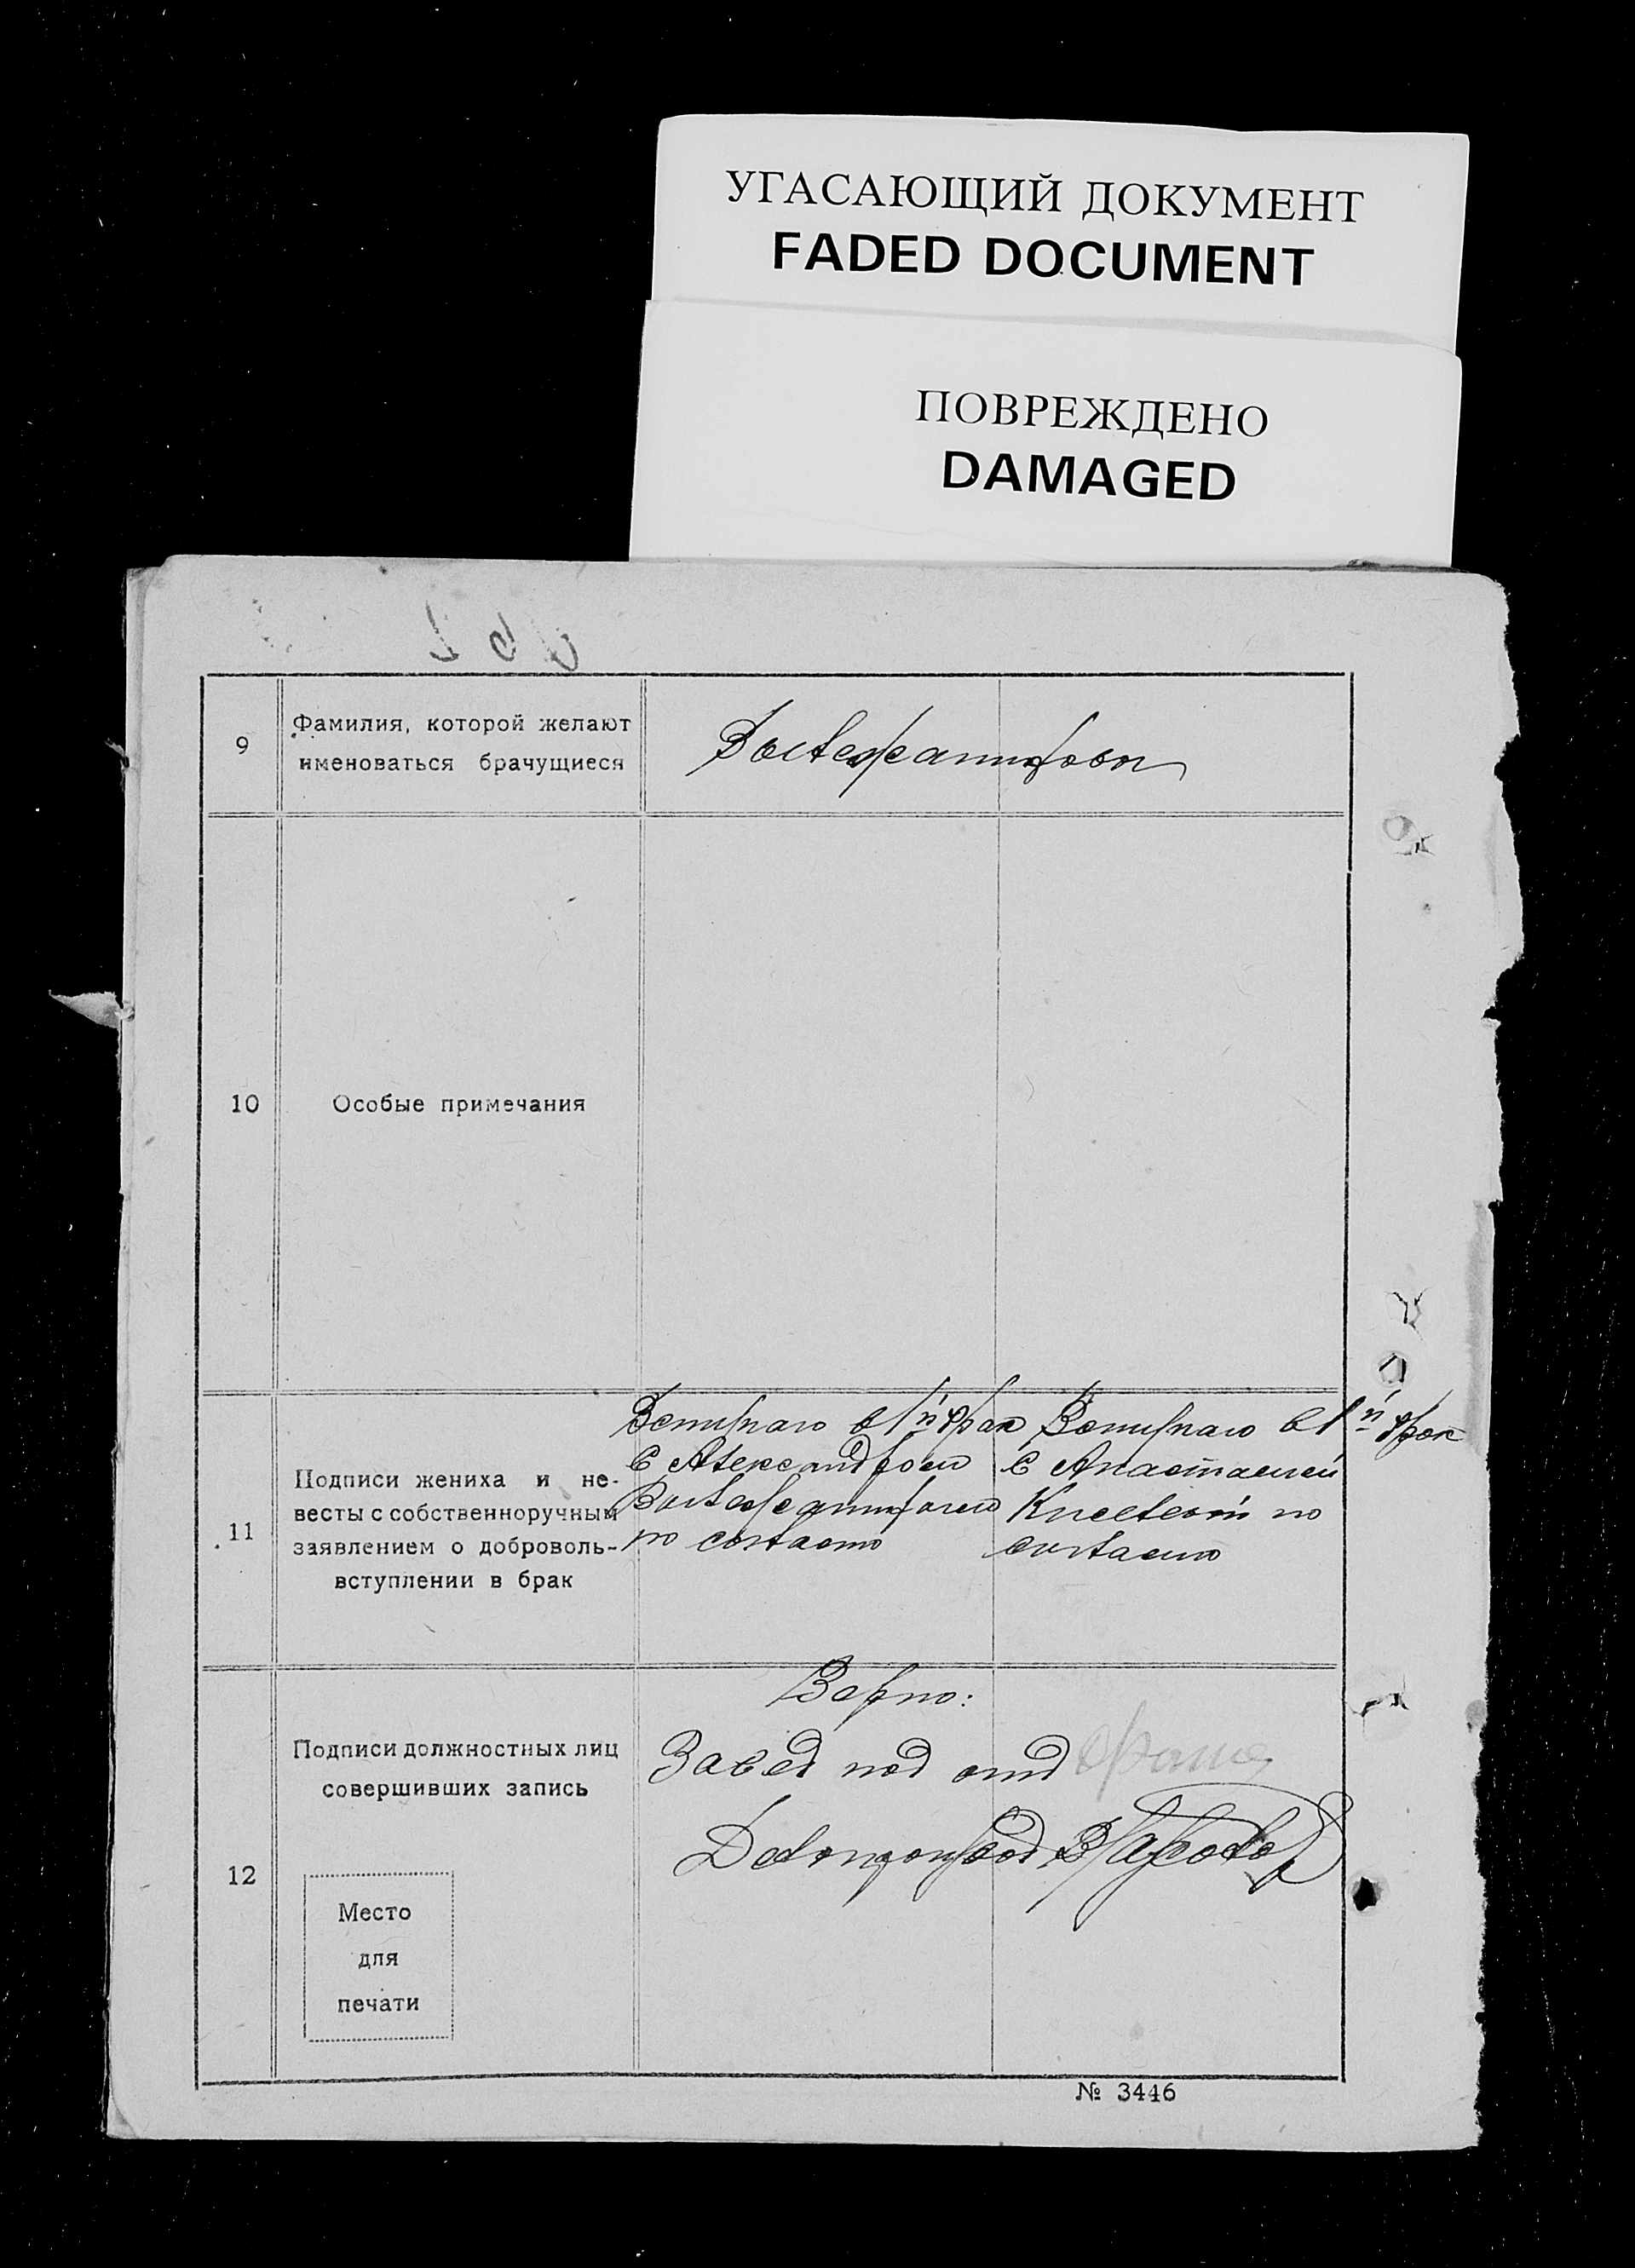 УГАСАЮЩИЙ ДОКУМЕНТ
FADED DOCUMENT
ПОВРЕЖДЕНО
DAMAGED
9
Фамилия, которой желают
именоваться брачущиеся
10
Особые примечания
11
Подписи жениха и не-
весты с собственноручным
заявлением о доброволь-
вступлении в брак
Вступаю в 1й брак
с Александрою
по согласию
Вступаю в 1й брак
с Анастасией
по
согласию
12
Подписи должностных лиц
совершивших запись
Место
для
печати
Верно:
Завед под отд
Делопроизвод
№ 3446